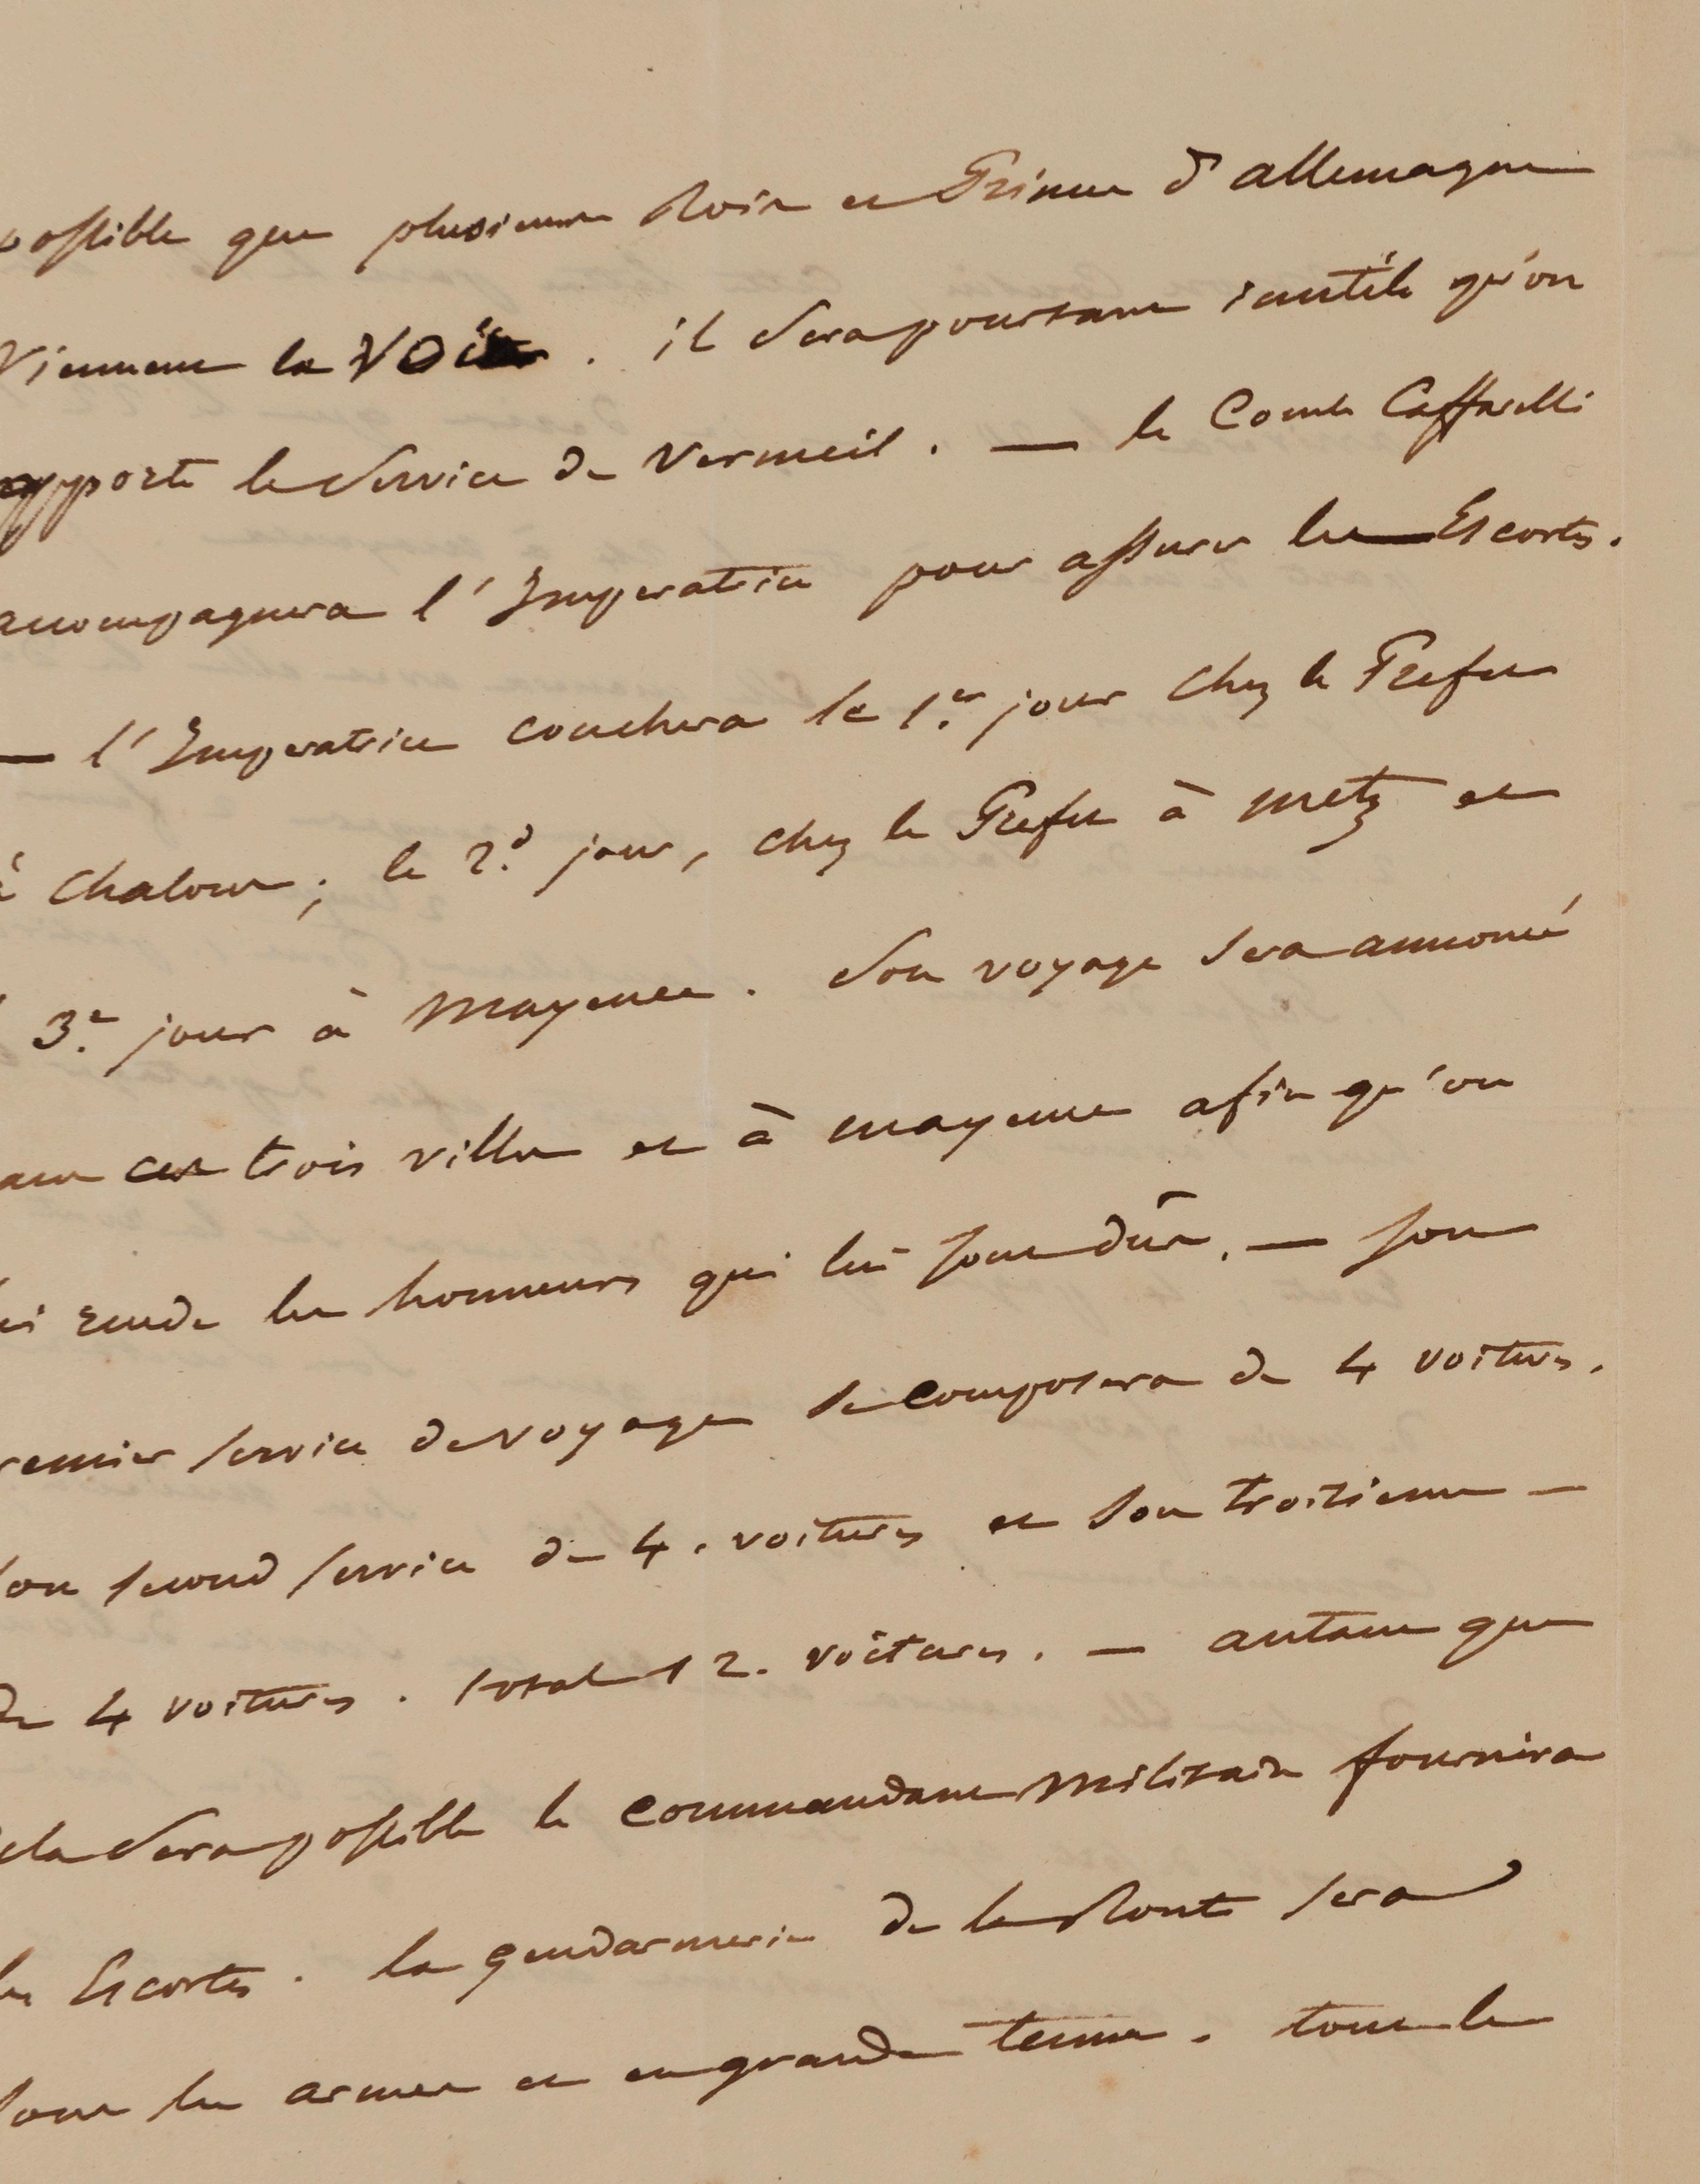 possible que plusieurs Rois et Princes d'allemagne
Viennent la Voir. il sera pourtant inutile qu'on
apporte le Service de Vermeil. — le Comte Caffarelli
accompagnera l'Imperatrice pour assurer les Escortes.
— l'Imperatrice couchera le 1.er jour chez le Prefet
à Chalons; le 2.d jour, chez le Prefet à Metz et
3.e jour à Mayence. Son voyage sera annoncé
dans ces trois villes et à mayence afin qu'on
lui rende les honneurs qui lui sont dûs. — son
premier service de voyage se composera de 4 voitures.
son second service de 4. voitures et son troisieme —
de 4 voitures. total 12. voitures. — autant que
cela Sera possible le commandant Militaire fournira
les Escortes. la gendarmerie de la Route sera
sous les armes et en grande tenue. tous les